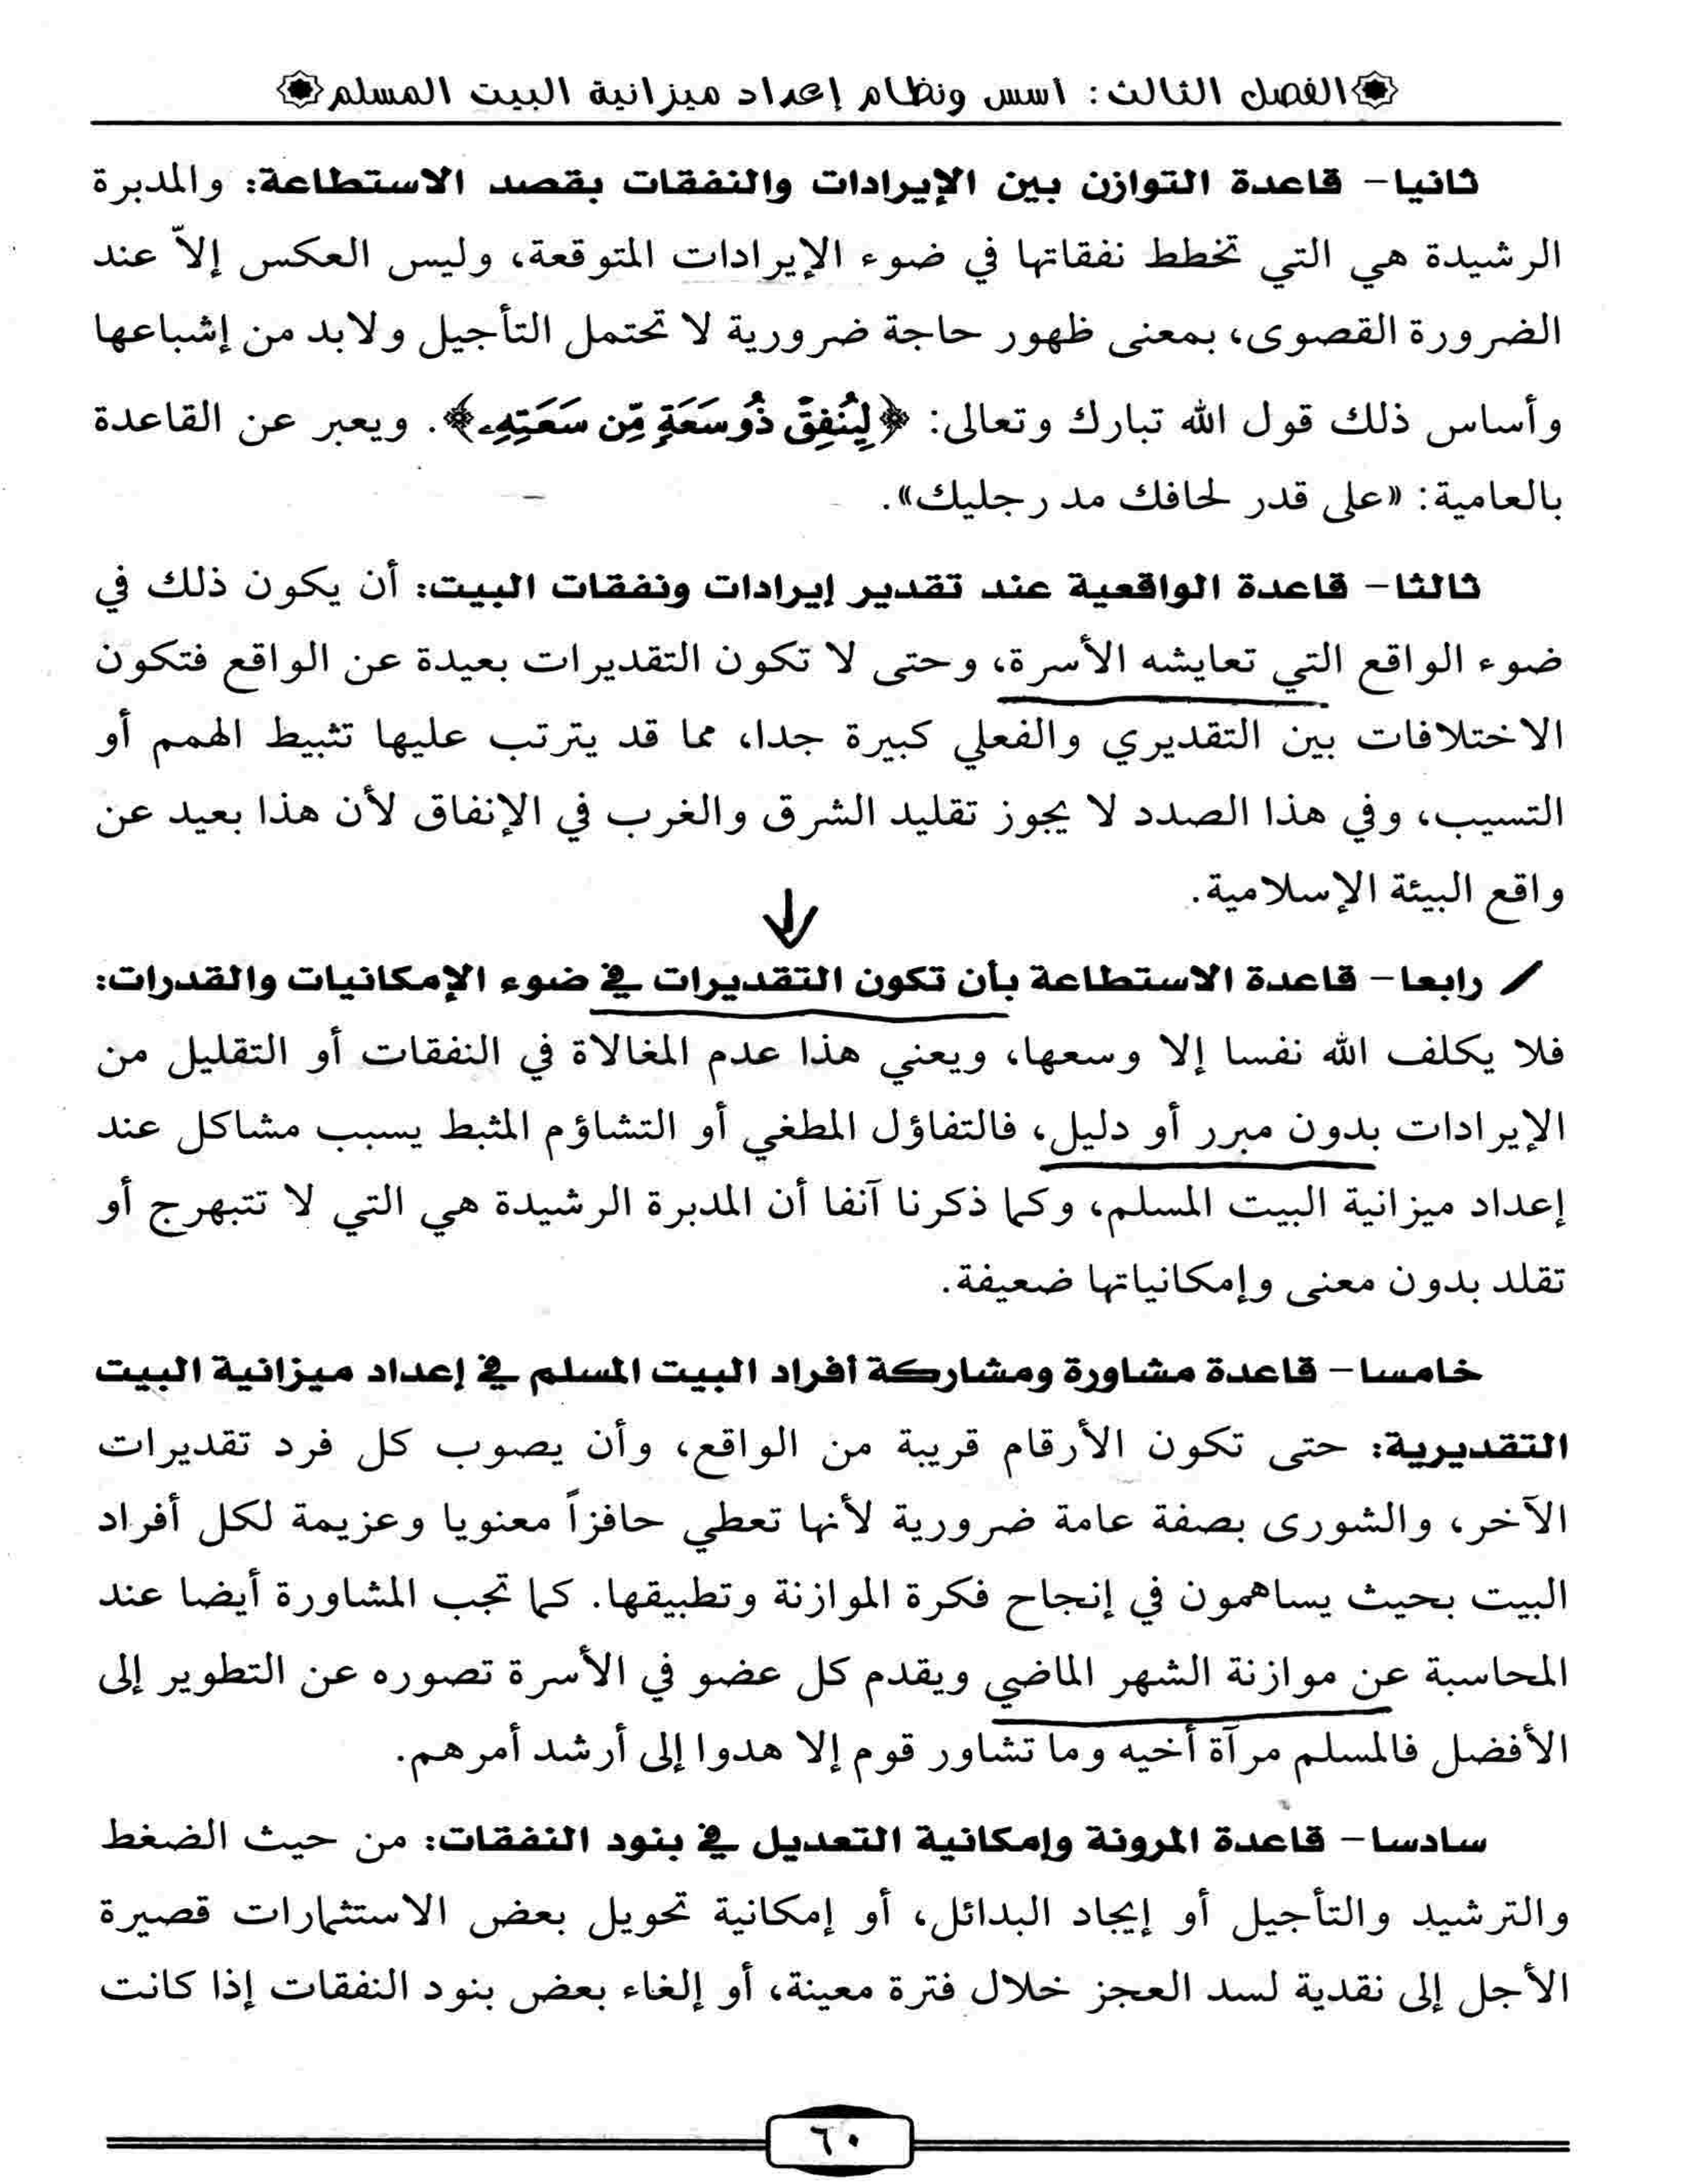 الفصل الثالث: أسس ونظام إعداد ميزانية البيت المسلم
ثانيا- قاعدة التوازن بين الإيرادات والنفقات بقصد الاستطاعة: والمدبرة
الرشيدة هي التي تخطط نفقاتها في ضوء الإيرادات المتوقعة، وليس العكس إلاّ عند
الضرورة القصوى، بمعنى ظهور حاجة ضرورية لا تحتمل التأجيل ولابد من إشباعها
وأساس ذلك قول الله تبارك وتعالى: ﴿لِيُنفِقْ ذُو سَعَةٍ مِّن سَعَتِهِۦ﴾. ويعبر عن القاعدة
بالعامية: «على قدر لحافك مد رجليك».
ثالثا- قاعدة الواقعية عند تقدير إيرادات ونفقات البيت: أن يكون ذلك في
ضوء الواقع التي تعايشه الأسرة، وحتى لا تكون التقديرات بعيدة عن الواقع فتكون
الاختلافات بين التقديري والفعلي كبيرة جدا، مما قد يترتب عليها تثبيط الهمم أو
التسيب، وفي هذا الصدد لا يجوز تقليد الشرق والغرب في الإنفاق لأن هذا بعيد عن
واقع البيئة الإسلامية.
رابعا- قاعدة الاستطاعة بأن تكون التقديرات في ضوء الإمكانيات والقدرات:
فلا يكلف الله نفسا إلا وسعها، ويعني هذا عدم المغالاة في النفقات أو التقليل من
الإيرادات بدون مبرر أو دليل، فالتفاؤل المطغي أو التشاؤم المثبط يسبب مشاكل عند
إعداد ميزانية البيت المسلم، وكما ذكرنا آنفا أن المدبرة الرشيدة هي التي لا تتبهرج أو
تقلد بدون معنى وإمكانياتها ضعيفة.
خامسا- قاعدة مشاورة ومشاركة أفراد البيت المسلم في إعداد ميزانية البيت
التقديرية: حتى تكون الأرقام قريبة من الواقع، وأن يصوب كل فرد تقديرات
الآخر، والشورى بصفة عامة ضرورية لأنها تعطي حافزاً معنويا وعزيمة لكل أفراد
البيت بحيث يساهمون في إنجاح فكرة الموازنة وتطبيقها. كما تجب المشاورة أيضا عند
المحاسبة عن موازنة الشهر الماضي ويقدم كل عضو في الأسرة تصوره عن التطوير إلى
الأفضل فالمسلم مرآة أخيه وما تشاور قوم إلا هدوا إلى أرشد أمرهم.
سادسا- قاعدة المرونة وإمكانية التعديل في بنود النفقات: من حيث الضغط
والترشيد والتأجيل أو إيجاد البدائل، أو إمكانية تحويل بعض الاستثمارات قصيرة
الأجل إلى نقدية لسد العجز خلال فترة معينة، أو إلغاء بعض بنود النفقات إذا كانت
٦٠